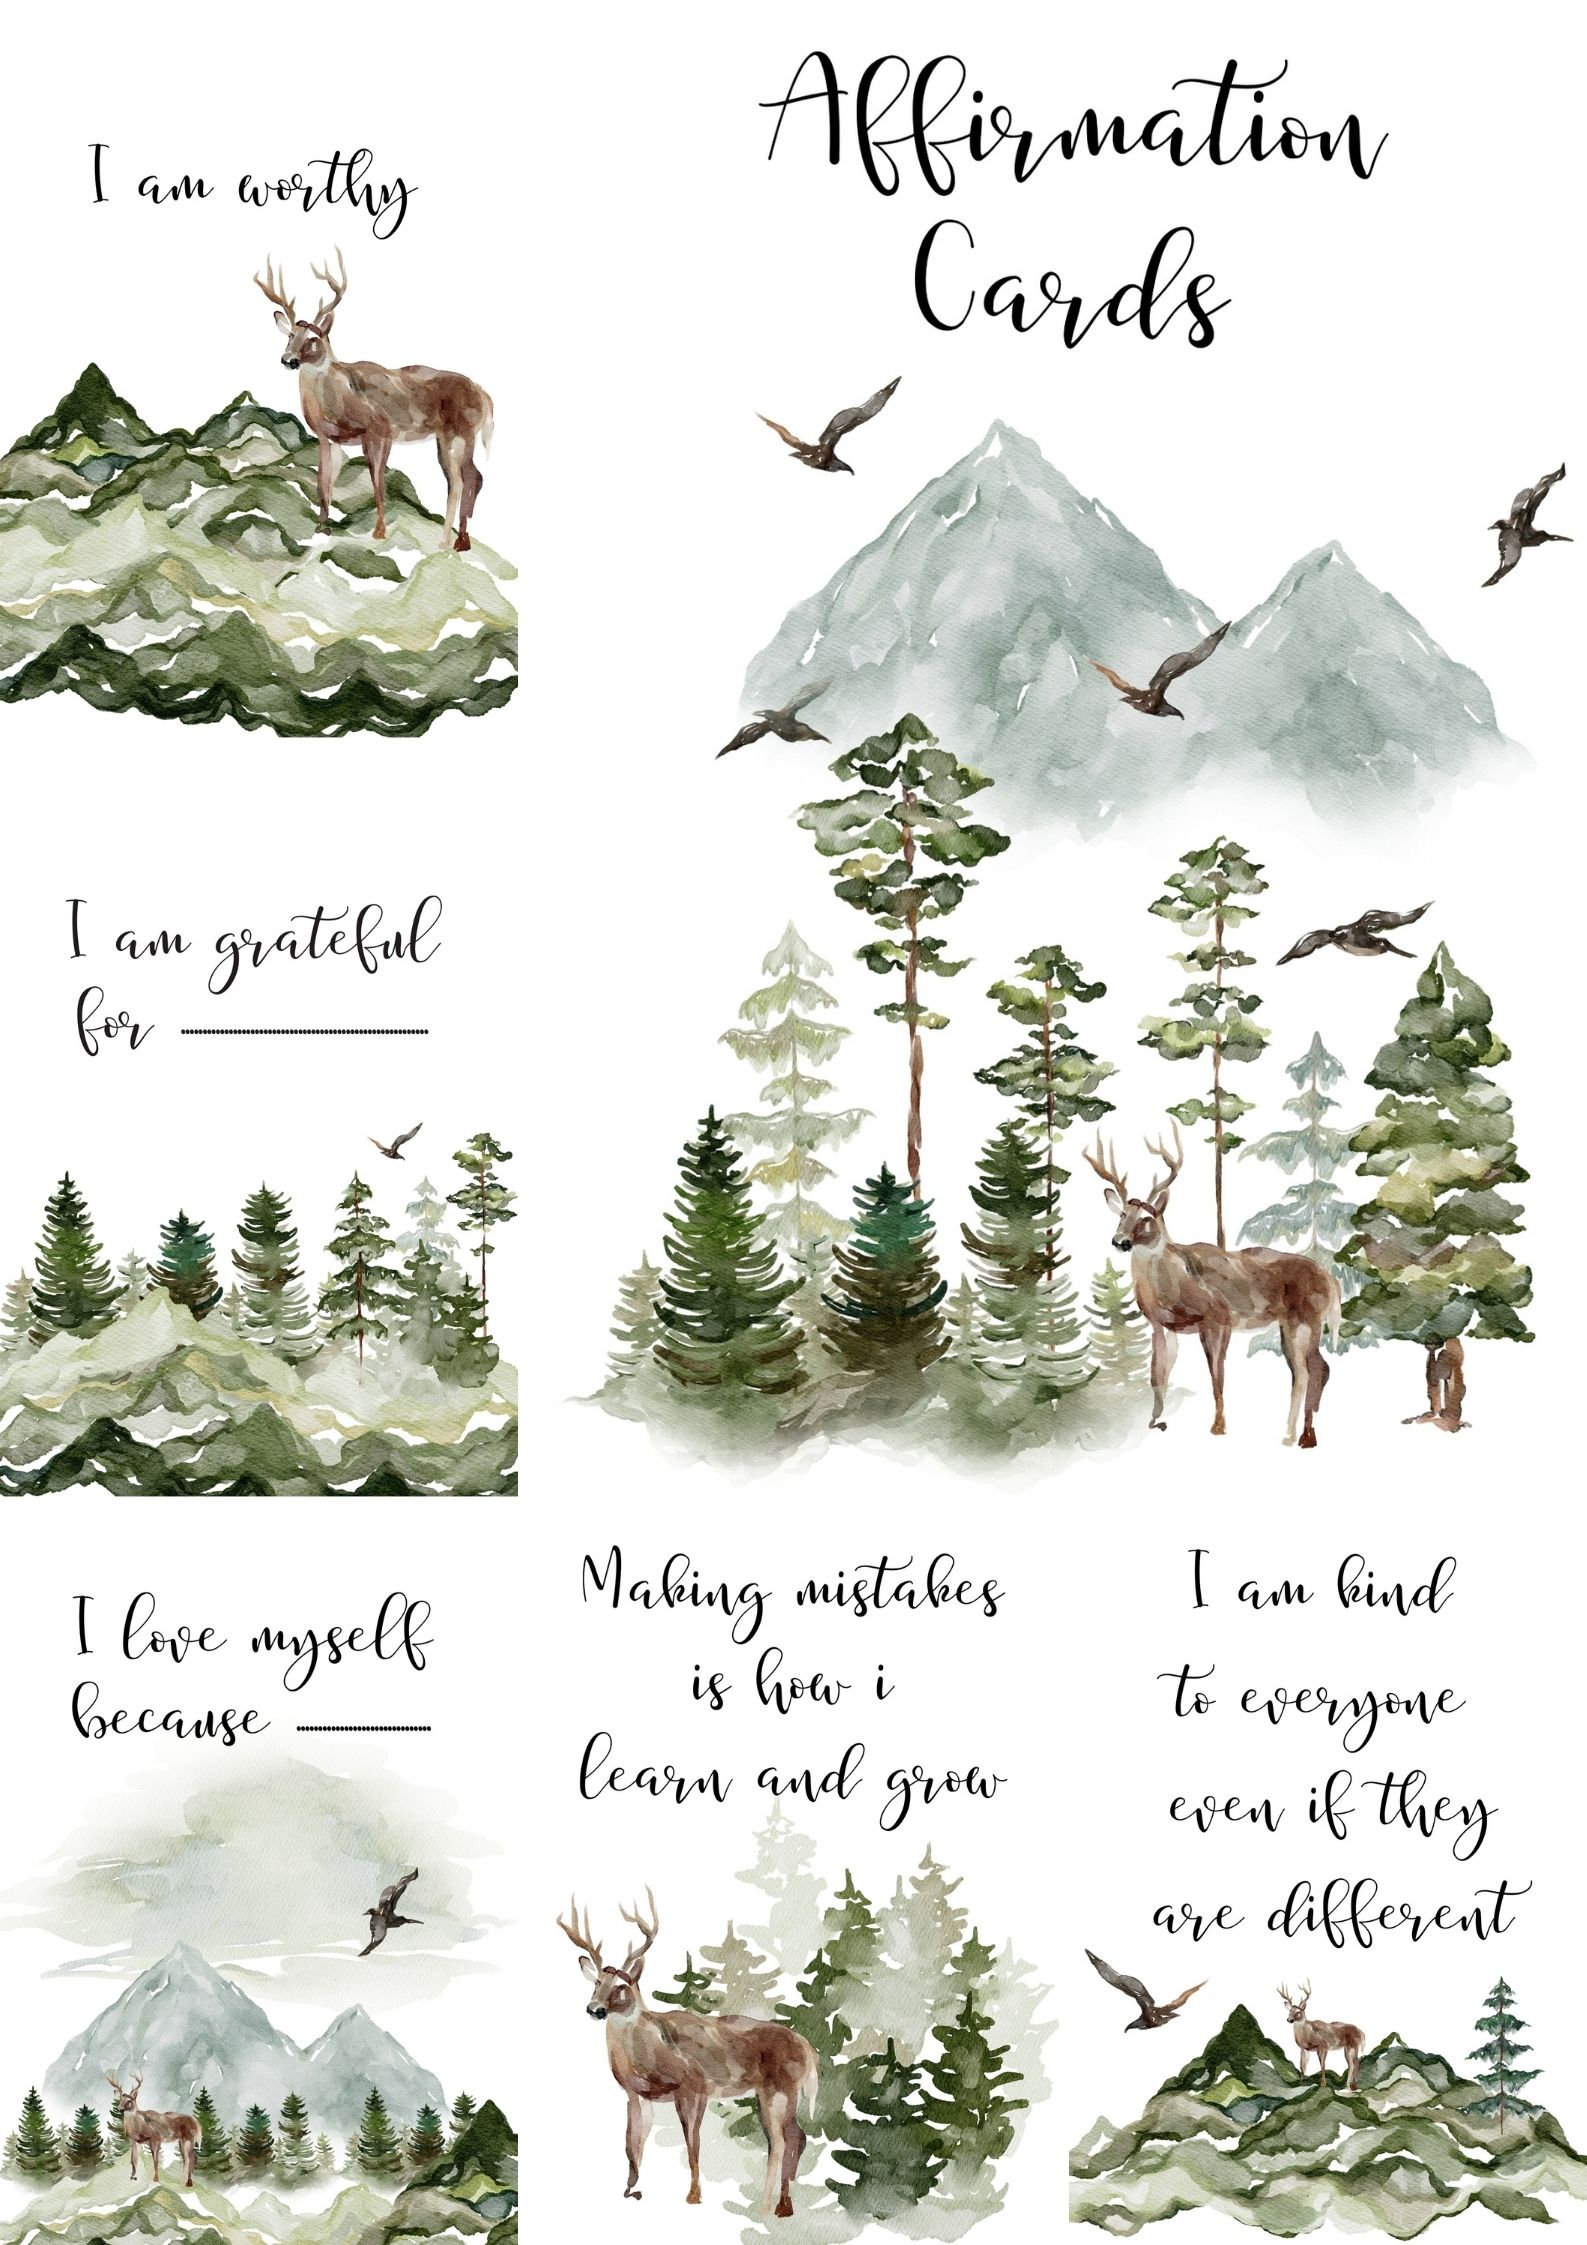 Affirmation
Cards
I am worthy
I am grateful
for
I love myself
because
Making mistakes
is how i
learn and grow
I am kind
to everyone
even if they
are different